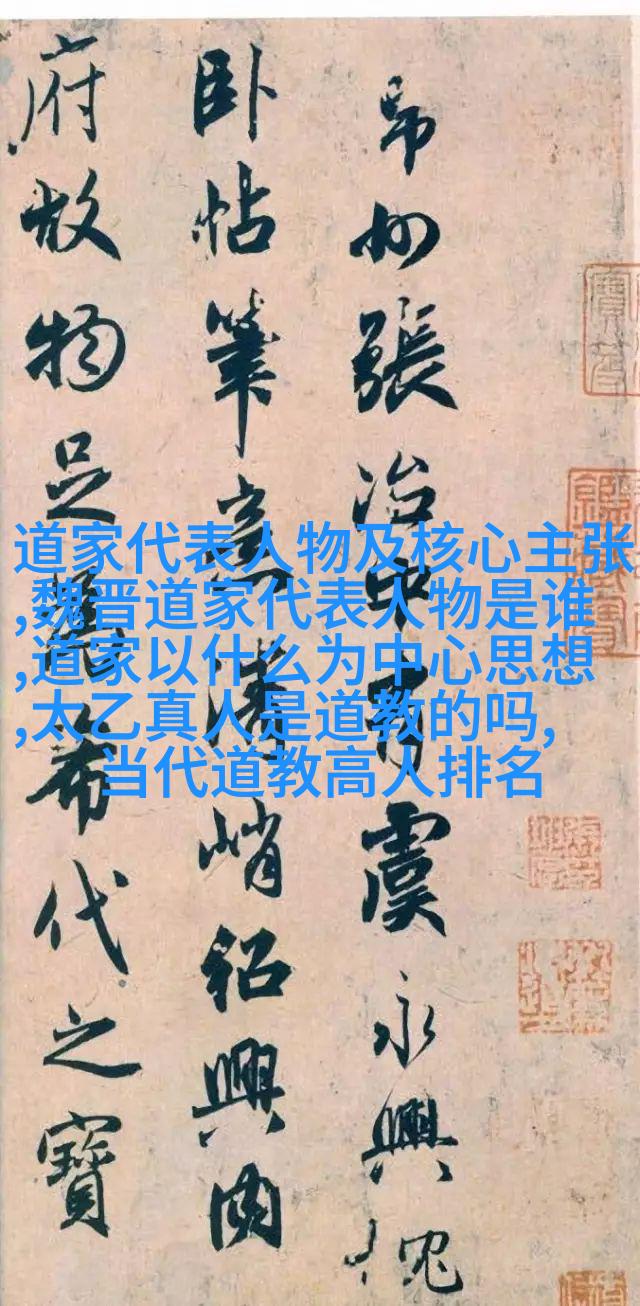 州張治中有虞永興
卧帖筆意峭紹興内
府故物足為希代之寶
道家代表人物及核心主张
,魏晋道家代表人物是谁
,道家以什么为中心思想
,太乙真人是道教的吗,
当代道教高人排名